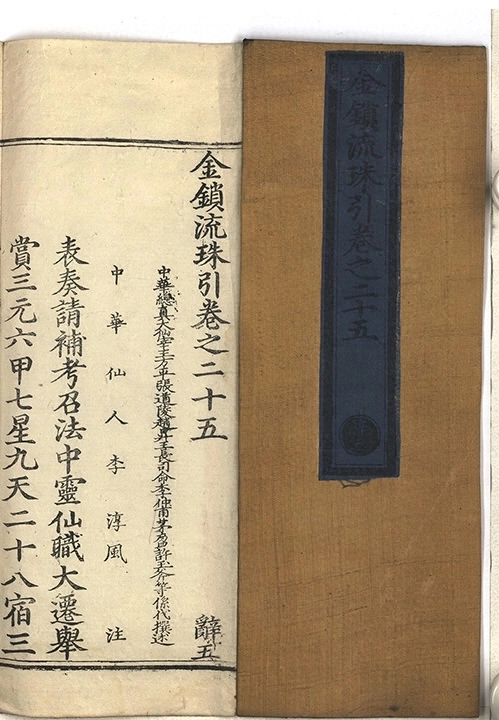 金鎖流珠引卷之二十五
金鎖流珠引卷之二十五
辭五
中華總真大仙宰王方平張道陵趙昇王長司命李仲甫茅盈許玉斧等係代撰述
中華仙人李淳風注
表奏請補考召法中靈仙職大遷舉
賞三元六甲七星九天二十八宿三